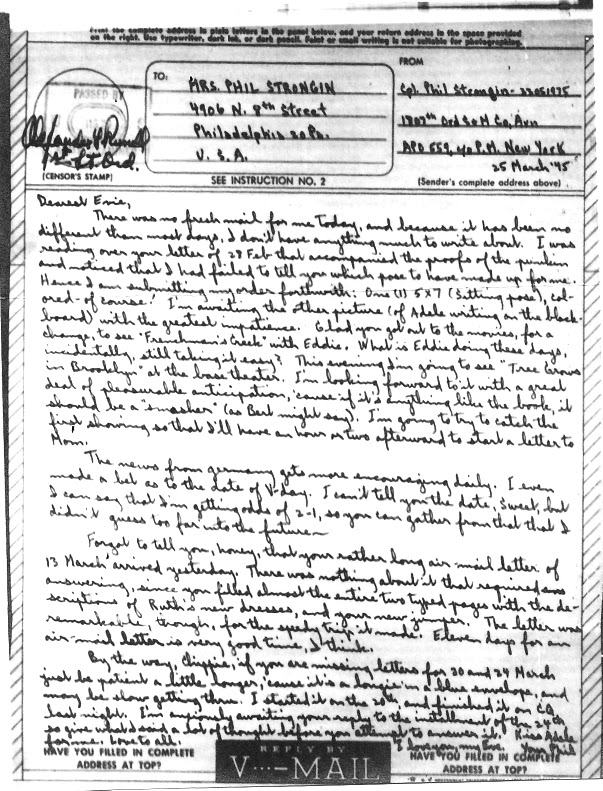 Print the complete address in plain letters in the panel below, and your return address in the space provided
on the right. Use typewriter, dark ink, or dark pencil. Faint or small writing is not suitable for photographing.
PASSED BY
1st Lt. Ord.
(CENSOR'S STAMP)
TO:
MRS. PHIL STRONGIN
4906 N. 8th Street
Philadelphia 20 Pa.
U. S. A.
SEE INSTRUCTION NO. 2
FROM
Cpl. Phil Strongin - 33051975
1807th Ord S & M Co, Avn
APO 559, c/o P.M. New York
25 March '45
(Sender's complete address above)
Dearest Evie,
There was no fresh mail for me today, and because it has been no
different than most days, I don't have anything much to write about. I was
reading over your letter of 27 Feb that accompanied the proofs of the punkin
and noticed that I had failed to tell you which pose to have made up for me.
Hence I am submitting my order forthwith: One (1) 5x7 (sitting pose), col-
ored - of course! I'm awaiting the other picture (of Adele writing on the black-
board) with the greatest impatience. Glad you got out to the movies, for a
change, to see "Frenchman's Creek" with Eddie. What is Eddie doing these days,
incidentally, still taking it easy? This evening I'm going to see "Tree Grows
in Brooklyn" at the base theater. I'm looking forward to it with a great
deal of pleasurable anticipation, 'cause if it's anything like the book, it
should be a "smasher" (as Bert might say). I'm going to try to catch the
first showing so that I'll have an hour or two afterward to start a letter to
Mom.
The news from Germany gets more encouraging daily. I even
made a bet as to the date of V-day. I can't tell you the date, Sweet, but
I can say that I'm getting odds of 2-1, so you can gather from that that I
didn't guess too far into the future~
Forgot to tell you, honey, that your rather long air mail letter of
13 March arrived yesterday. There was nothing about it that required
answering, since you filled almost the entire two typed pages with the de-
scriptions of Ruth's new dresses, and your new jumper. The letter was
remarkable, though, for the speedy trip it made. Eleven days for an
air-mail letter is very good time, I think.
By the way, Chippie, if you are missing letters for 20 and 24 March
just be patient a little longer, 'cause it's a longie in a blue envelope, and
may be slow getting thru. I started it on the 20th, and finished it on CQ
last night. I'm anxiously awaiting your reply to the installment of the 24th
so give what I said a lot of thought before you attempt to answer it. Kiss Adele
for me. Love to all. I love you, my Evie. Your Phil
HAVE YOU FILLED IN COMPLETE
ADDRESS AT TOP?
REPLY BY
V···—MAIL
HAVE YOU FILLED IN COMPLETE
ADDRESS AT TOP?